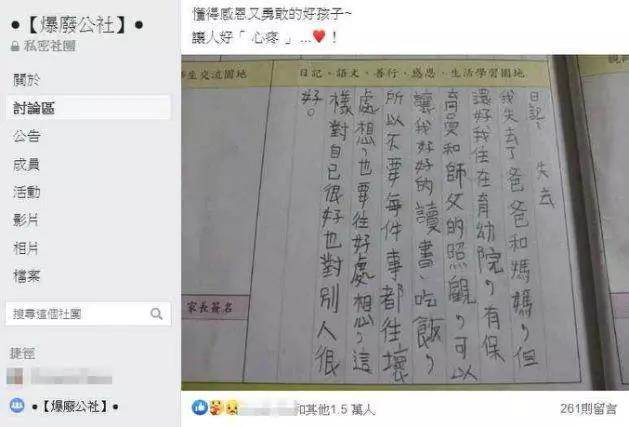 ●【爆廢公社】●
私密社團
關於
討論區
公告
成員
活動
影片
相片
檔案
搜尋這個社團
捷徑
●【爆廢公社】●
懂得感恩又勇敢的好孩子~
讓人好「 心疼 」...❤️!
生交流園地
日記、語文、善行、感恩、生活學習園地
日記、 失去
我失去了爸爸和媽媽,但
還好我住在育幼院,有保
育員和師父的照顧,可以
讓我好好的讀書、吃飯,
所以不要每件事都往壞
處想,也要往好處想,這
樣對自已很好也對別人很
好。
家長簽名
和其他1.5 萬人
261則留言